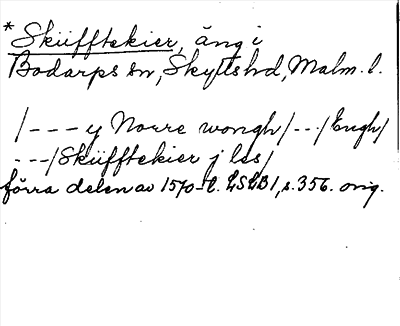 * Sküfftekier, äng i
Bodarps sn, Skytts hd, Malm. l.
/--- y Norre wongh/---/Engh/
---/Sküfftekier j les/
förra delen av 1570-t. LSLB 1, s. 356. orig.